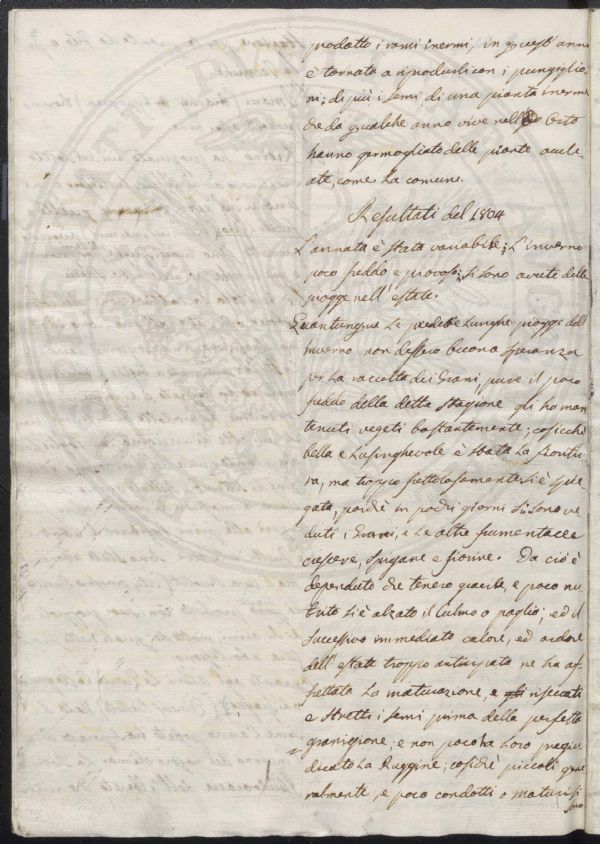 prodotto i rami inermi, in quest'anno
è tornata a riprodurli con i pungiglio
ni; di più i semi di una pianta inerme
che da qualche anno vive nell' Orto
hanno germogliato delle piante acule-
ate, come la comune.
Resultati del 1804
L'annata è stata variabile; L'inverno
poco freddo e piovoso; si sono avute delle
piogge nell'estate.
Quantunque Le predette lunghe piogge dell'
Inverno non dessero buona speranza
per La raccolta dei Grani, pure il poco
freddo della detta stagione gli ha man
tenuti vegeti bastantemente; cosicchè
bella e Lusinghevole è stata La fioritu-
ra, ma troppo frettolosamente si è spie
gata, poichè in pochi giorni si sono ve
duti i Grani, e Le altre frumentacee
crescere, spigare e fiorire. Da ciò è
dependuto che tenero gracile, e poco nu
trito si è alzato il Culmo o paglia; ed il
successivo immediato calore, ed ardore
dell'estate troppo anticipata ne ha af
frettata La maturazione, e risecati
e stretti i semi prima della perfetta
granigione; e non poco ha Loro pregiu
dicato La Ruggine; cosichè piccoli gene
ralmente, e poco condotti o maturi si
sono